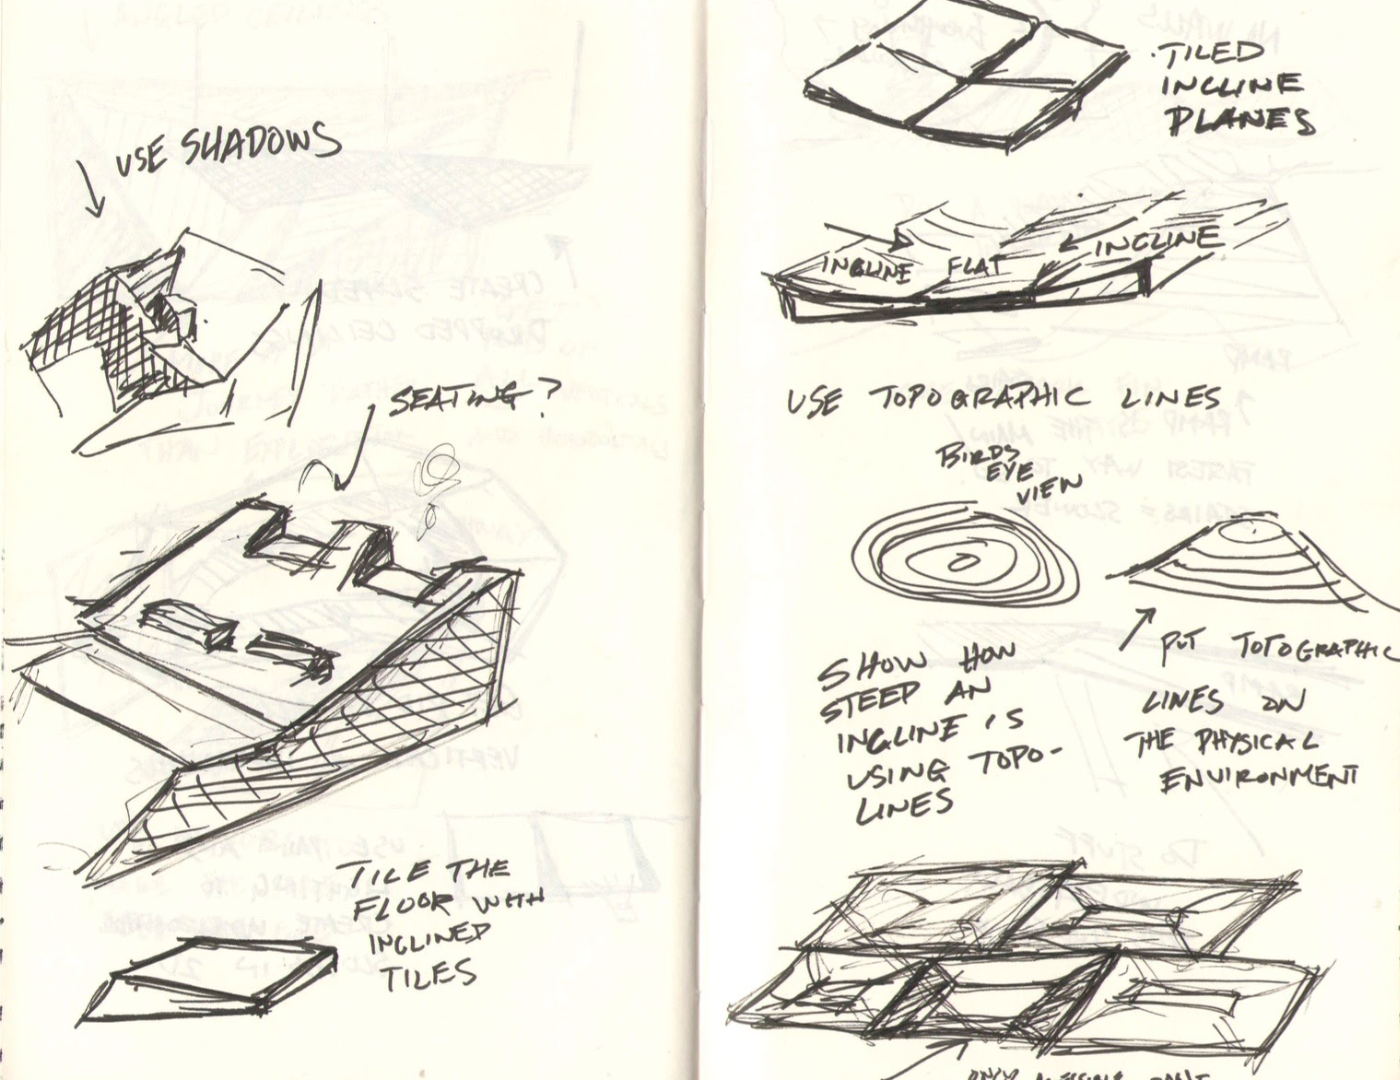 USE SHADOWS
SEATING?
TILE THE
FLOOR WITH
INCLINED
TILES
· TILED
INCLINE
PLANES
INCLINE FLAT INCLINE
USE TOPOGRAPHIC LINES
BIRDS
EYE
VIEW
SHOW HOW
STEEP AN
INCLINE IS
USING TOPO-
LINES
PUT TOPOGRAPHIC
LINES ON
THE PHYSICAL
ENVIRONMENT
ONLY